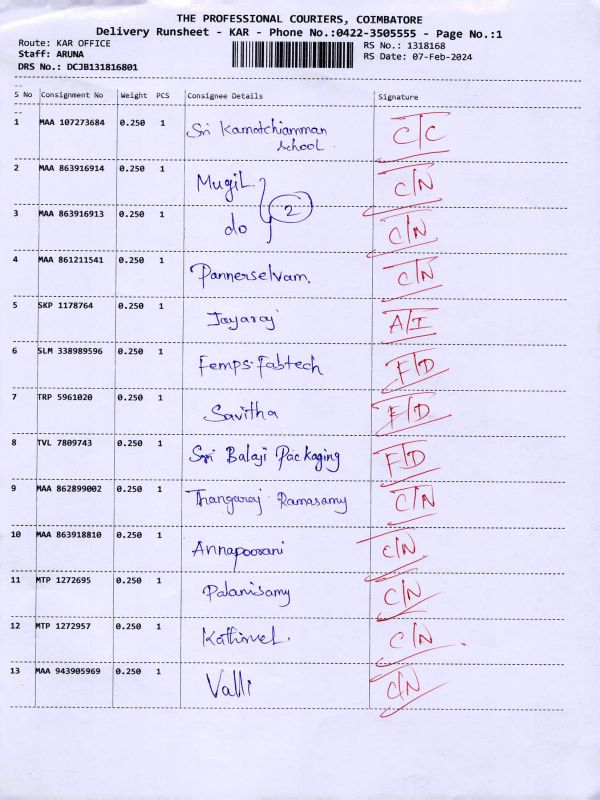 THE PROFESSIONAL COURIERS, COIMBATORE
Delivery Runsheet - KAR - Phone No.:0422-3505555 - Page No.:1
Route: KAR OFFICE RS No.: 1318168
Staff: ARUNA RS Date: 07-Feb-2024
DRS No.: DCJB131816801
S No Consignment No Weight PCS Consignee Details Signature
1 MAA 107273684 0.250 1 Sri Kamatchiamman school. C/C
2 MAA 863916914 0.250 1 Mugil C/N
2
3 MAA 863916913 0.250 1 do C/N
4 MAA 861211541 0.250 1 Pannerselvam. C/N
5 SKP 1178764 0.250 1 Jayaraj A/I
6 SLM 338989596 0.250 1 Femps Fabtech F/D
7 TRP 5961020 0.250 1 Savitha F/D
8 TVL 7809743 0.250 1 Sri Balaji Packaging F/D
9 MAA 862899002 0.250 1 Thangaraj Ramasamy C/N
10 MAA 863918810 0.250 1 Annapoorani C/N
11 MTP 1272695 0.250 1 Palanisamy C/N
12 MTP 1272957 0.250 1 Kathirvel. C/N
13 MAA 943905969 0.250 1 Valli C/N